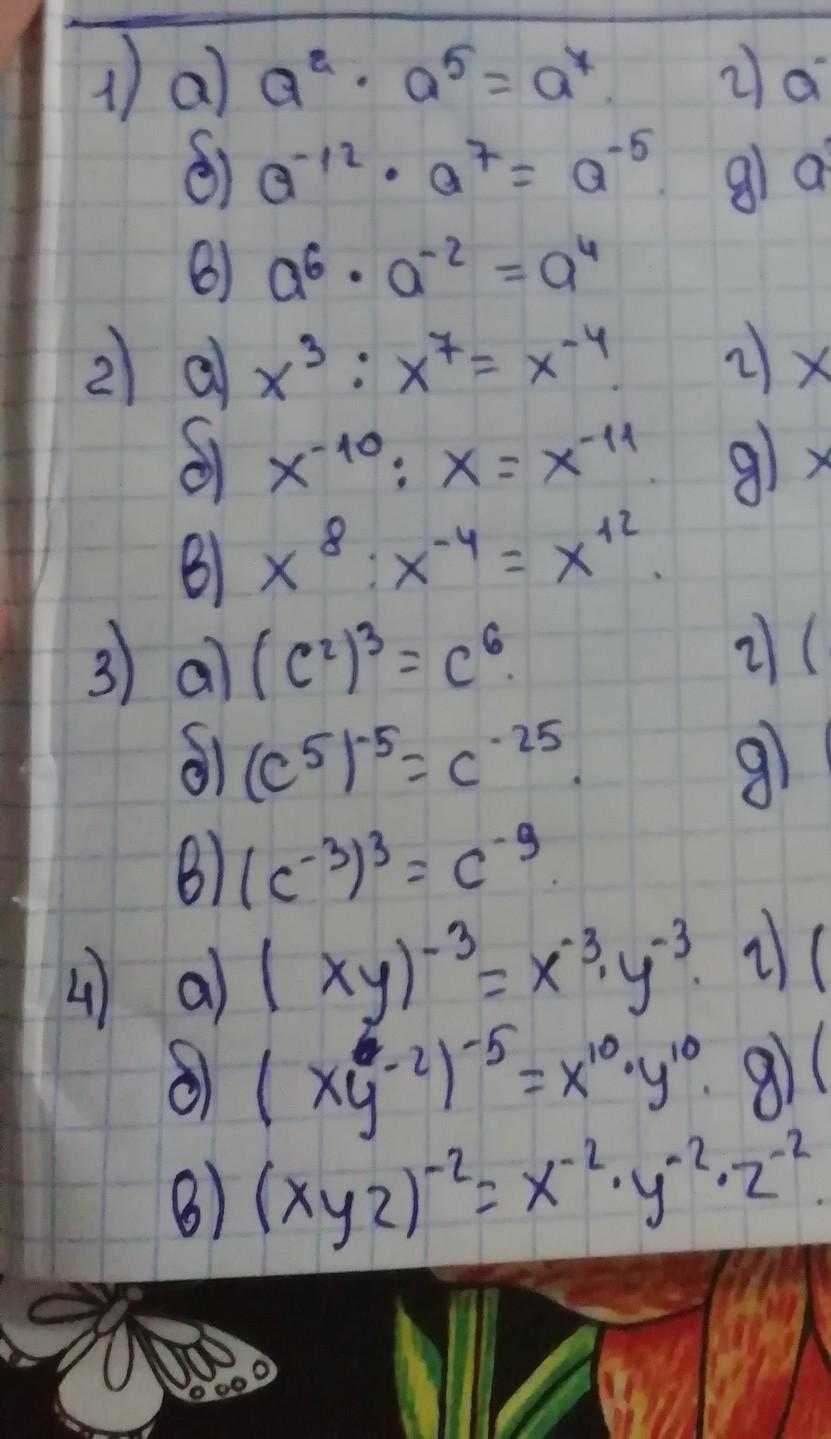 1) а) a² · a⁵ = a⁷. г) a⁻
б) a⁻¹² · a⁷ = a⁻⁵. д) a
в) a⁶ · a⁻² = a⁴
2) а) x³ : x⁷ = x⁻⁴. г) x
б) x⁻¹⁰ : x = x⁻¹¹. д) x
в) x⁸ : x⁻⁴ = x¹².
3) а) (c²)³ = c⁶. г) (
б) (c⁵)⁻⁵ = c⁻²⁵. д) (
в) (c⁻³)³ = c⁻⁹.
4) а) (xy)⁻³ = x⁻³ · y⁻³. г) (
б) (xy⁻²)⁻⁵ = x¹⁰ · y¹⁰. д) (
в) (xyz)⁻² = x⁻² · y⁻² · z⁻².